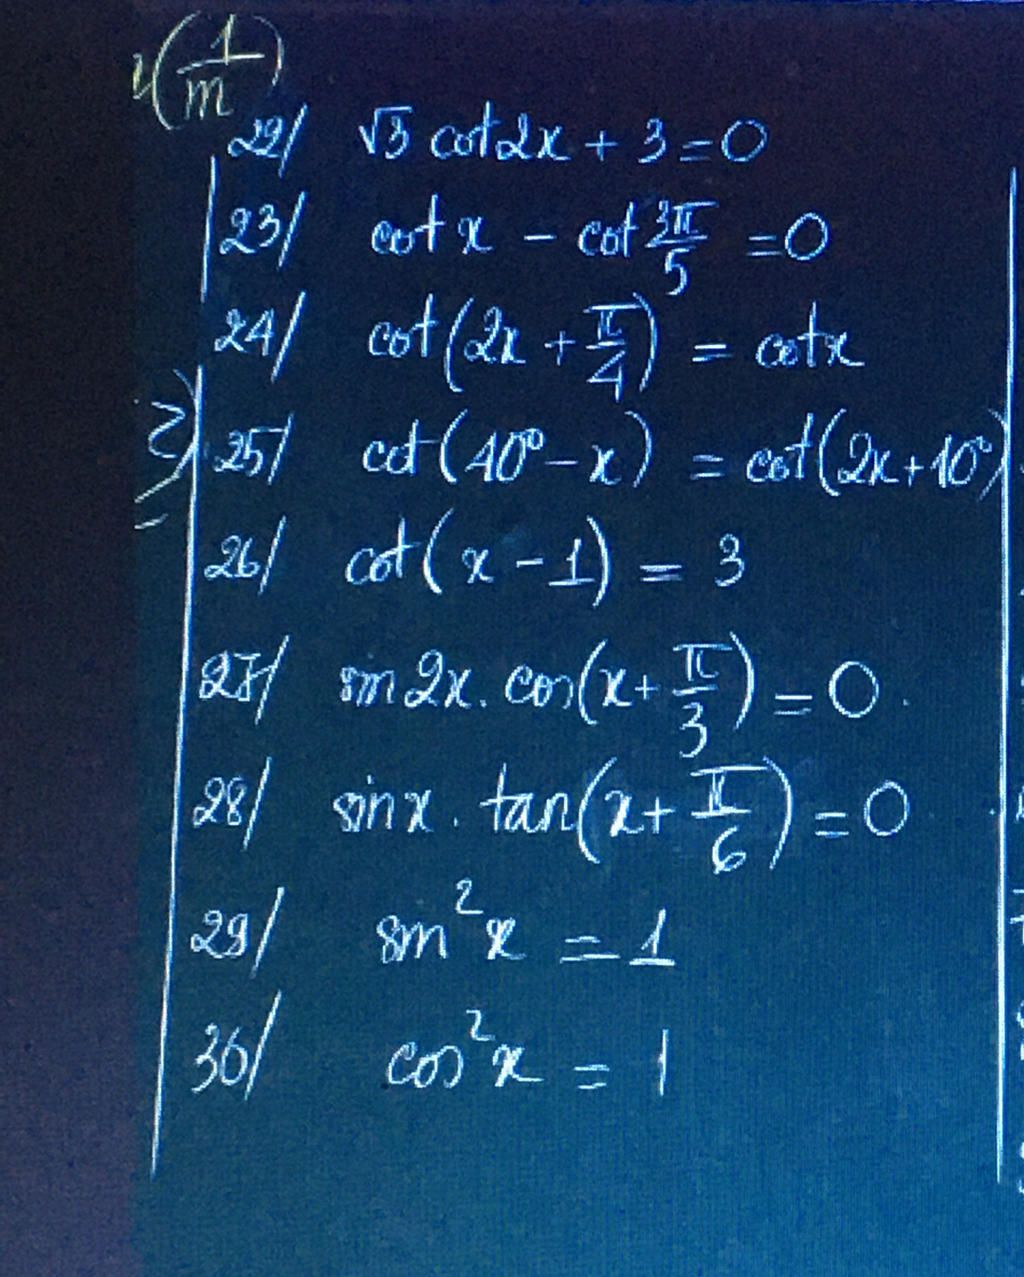 (1/m)
22/ √3 cot2x + 3 = 0
23/ cot x - cot 3π/5 = 0
24/ cot(2x + π/4) = cotx
25/ cot(40° - x) = cot(2x + 10°)
26/ cot(x - 1) = 3
27/ sin 2x. cos(x + π/3) = 0.
28/ sin x. tan(x + π/6) = 0
29/ sin²x = 1
30/ cos²x = 1